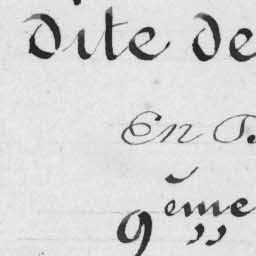 dite de
En
9ème